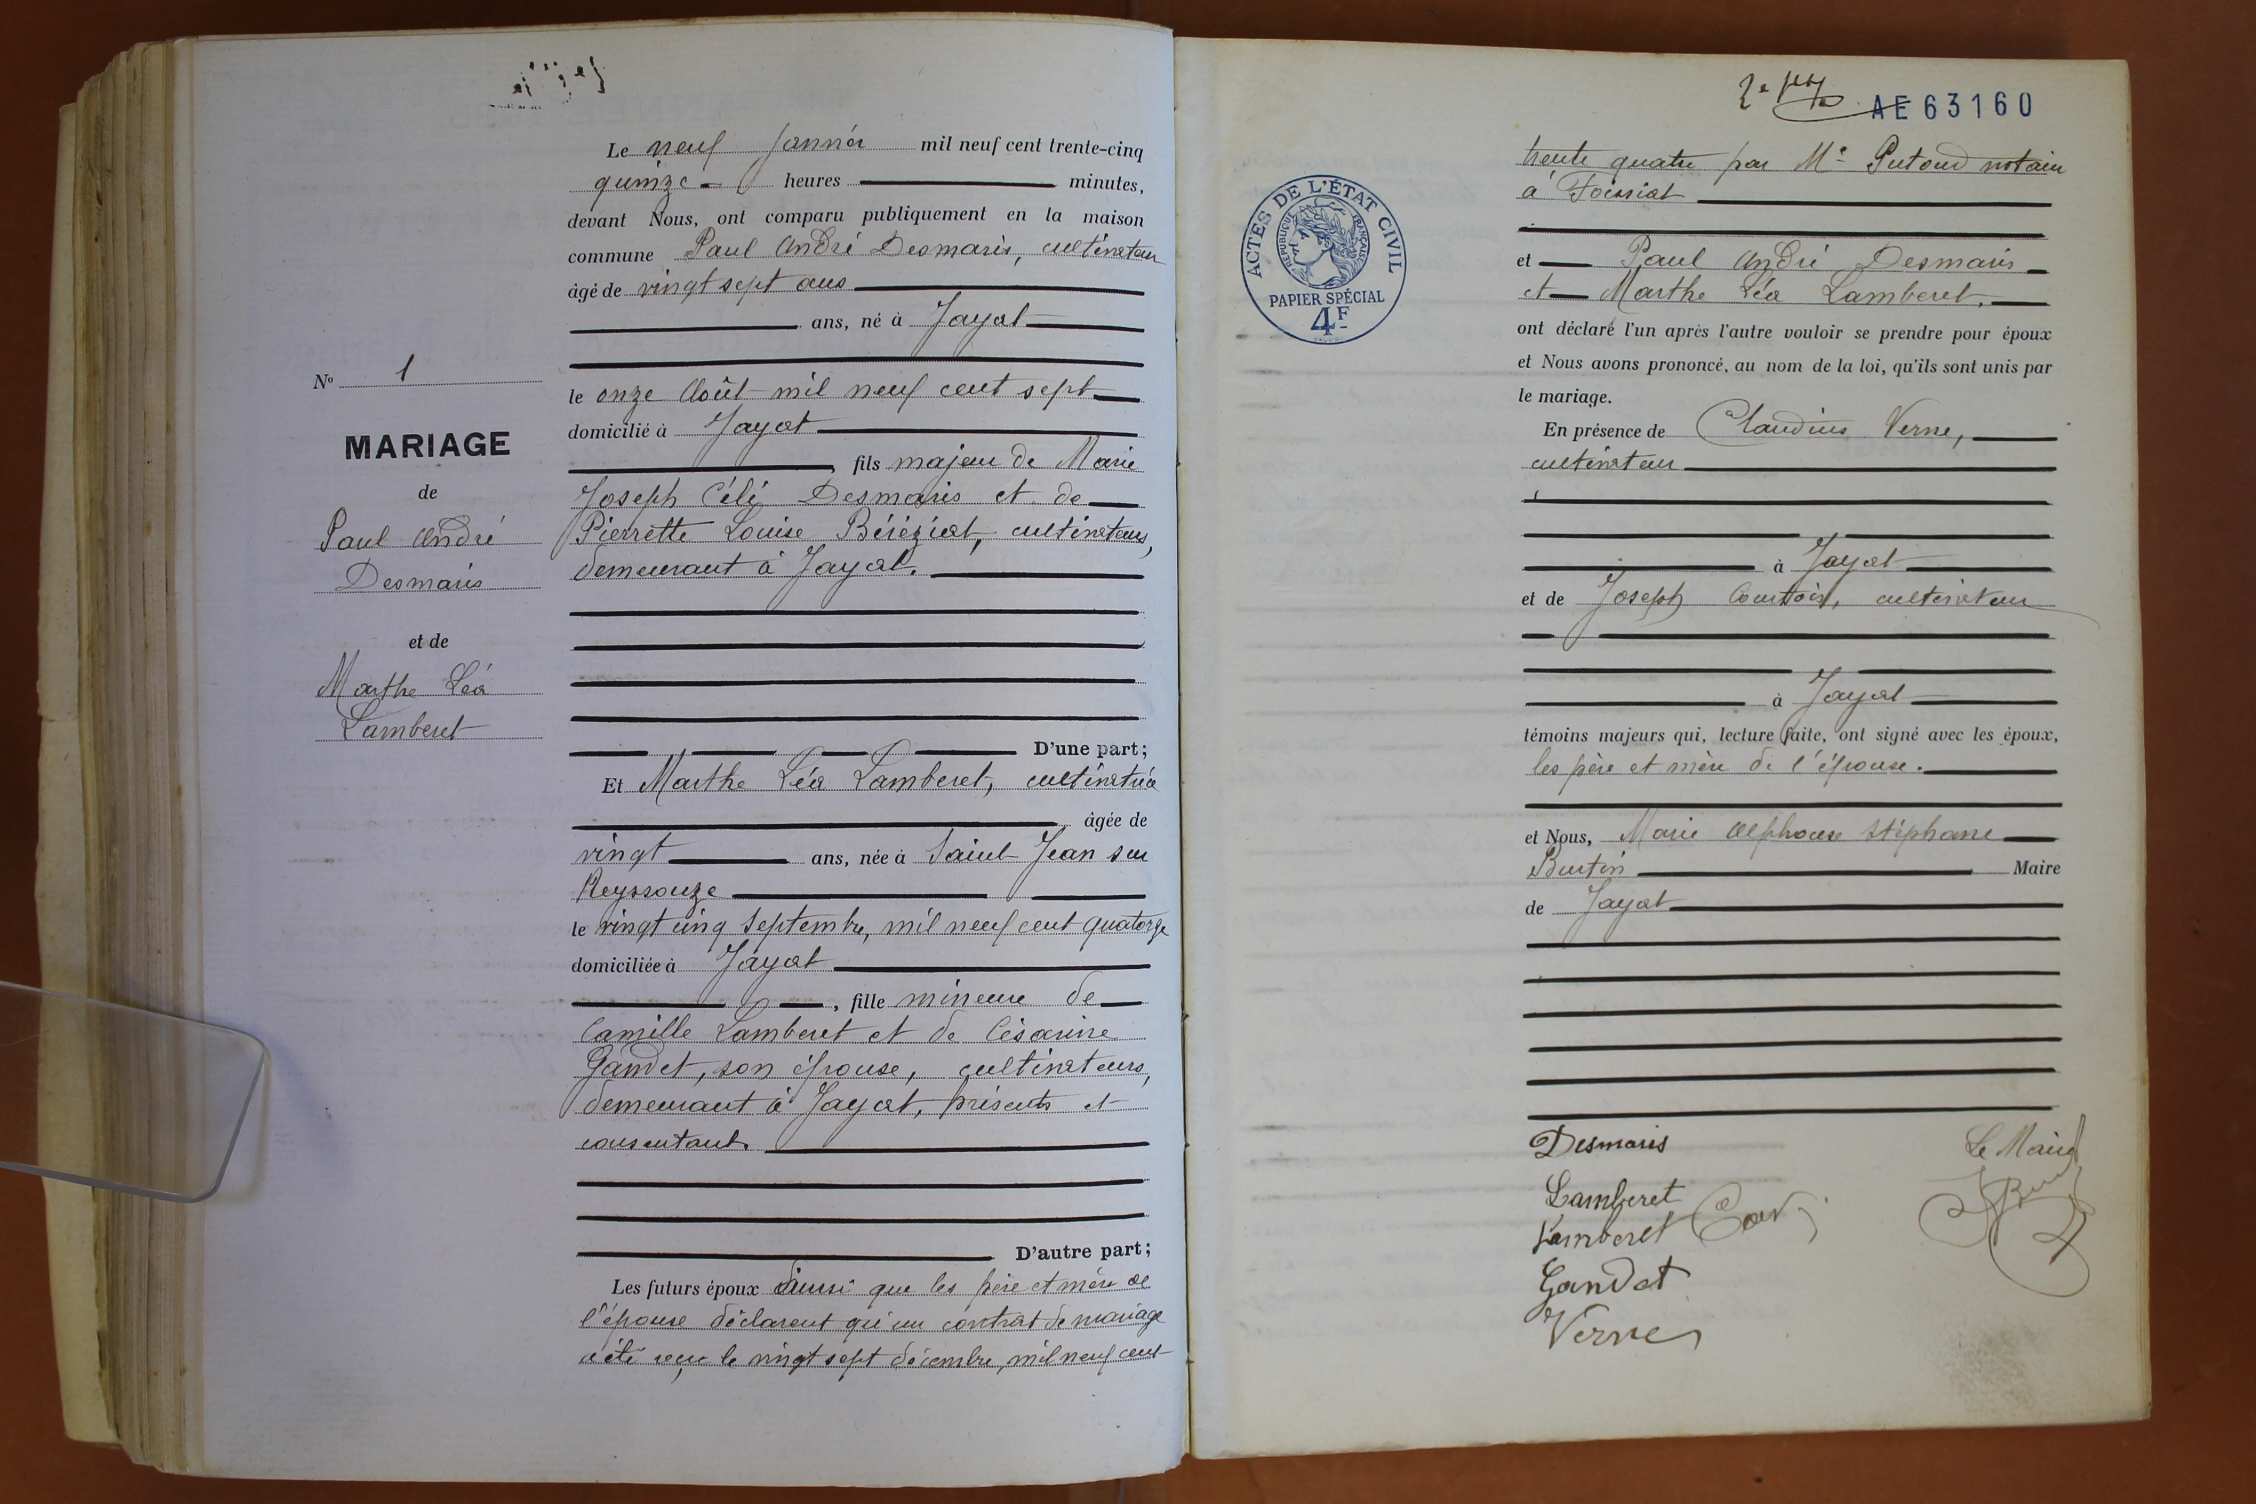 Le neuf Janvier mil neuf cent trente-cinq
quinze heures minutes,
devant Nous, ont comparu publiquement en la maison
commune Paul André Desmaris, cultivateur
âgé de vingt sept ans
ans, né à Jayat
le onze Août mil neuf cent sept
domicilié à Jayat
fils majeur de Marie
Joseph Céli Desmaris et de
Pierrette Louise Béréziat, cultivateurs,
demeurant à Jayat.
D'une part;
Et Marthe Léa Lamberet, cultivatrice
âgée de
vingt ans, née à Saint Jean sur
Reyssouze
le vingt cinq Septembre, mil neuf cent quatorze
domiciliée à Jayat
, fille mineure de
Camille Lamberet et de Césarine
Gandet, son épouse, cultivateurs,
demeurant à Jayat, présents et
consentants.
D'autre part;
Les futurs époux ainsi que les père et mère de
l'épouse déclarent qu'un contrat de mariage
a été reçu le vingt sept décembre, mil neuf cent
No 1
MARIAGE
de
Paul André
Desmaris
et de
Marthe Léa
Lamberet
AE 63160
trente quatre par Me Putoud notaire
à Foissiat
et Paul André Desmaris
et Marthe Léa Lamberet,
ont déclaré l'un après l'autre vouloir se prendre pour époux
et Nous avons prononcé, au nom de la loi, qu'ils sont unis par
le mariage.
En présence de Claudius Verne,
cultivateur
à Jayat
et de Joseph Courtois, cultivateur
à Jayat
témoins majeurs qui, lecture faite, ont signé avec les époux,
les père et mère de l'épouse.
et Nous, Marie Alphonse Stéphane
Burtin Maire
de Jayat
ACTES DE L'ÉTAT CIVIL
RÉPUBLIQUE FRANÇAISE
PAPIER SPÉCIAL
4F
Desmaris
Le Maire
Lamberet
Lamberet
Gandet
Verne